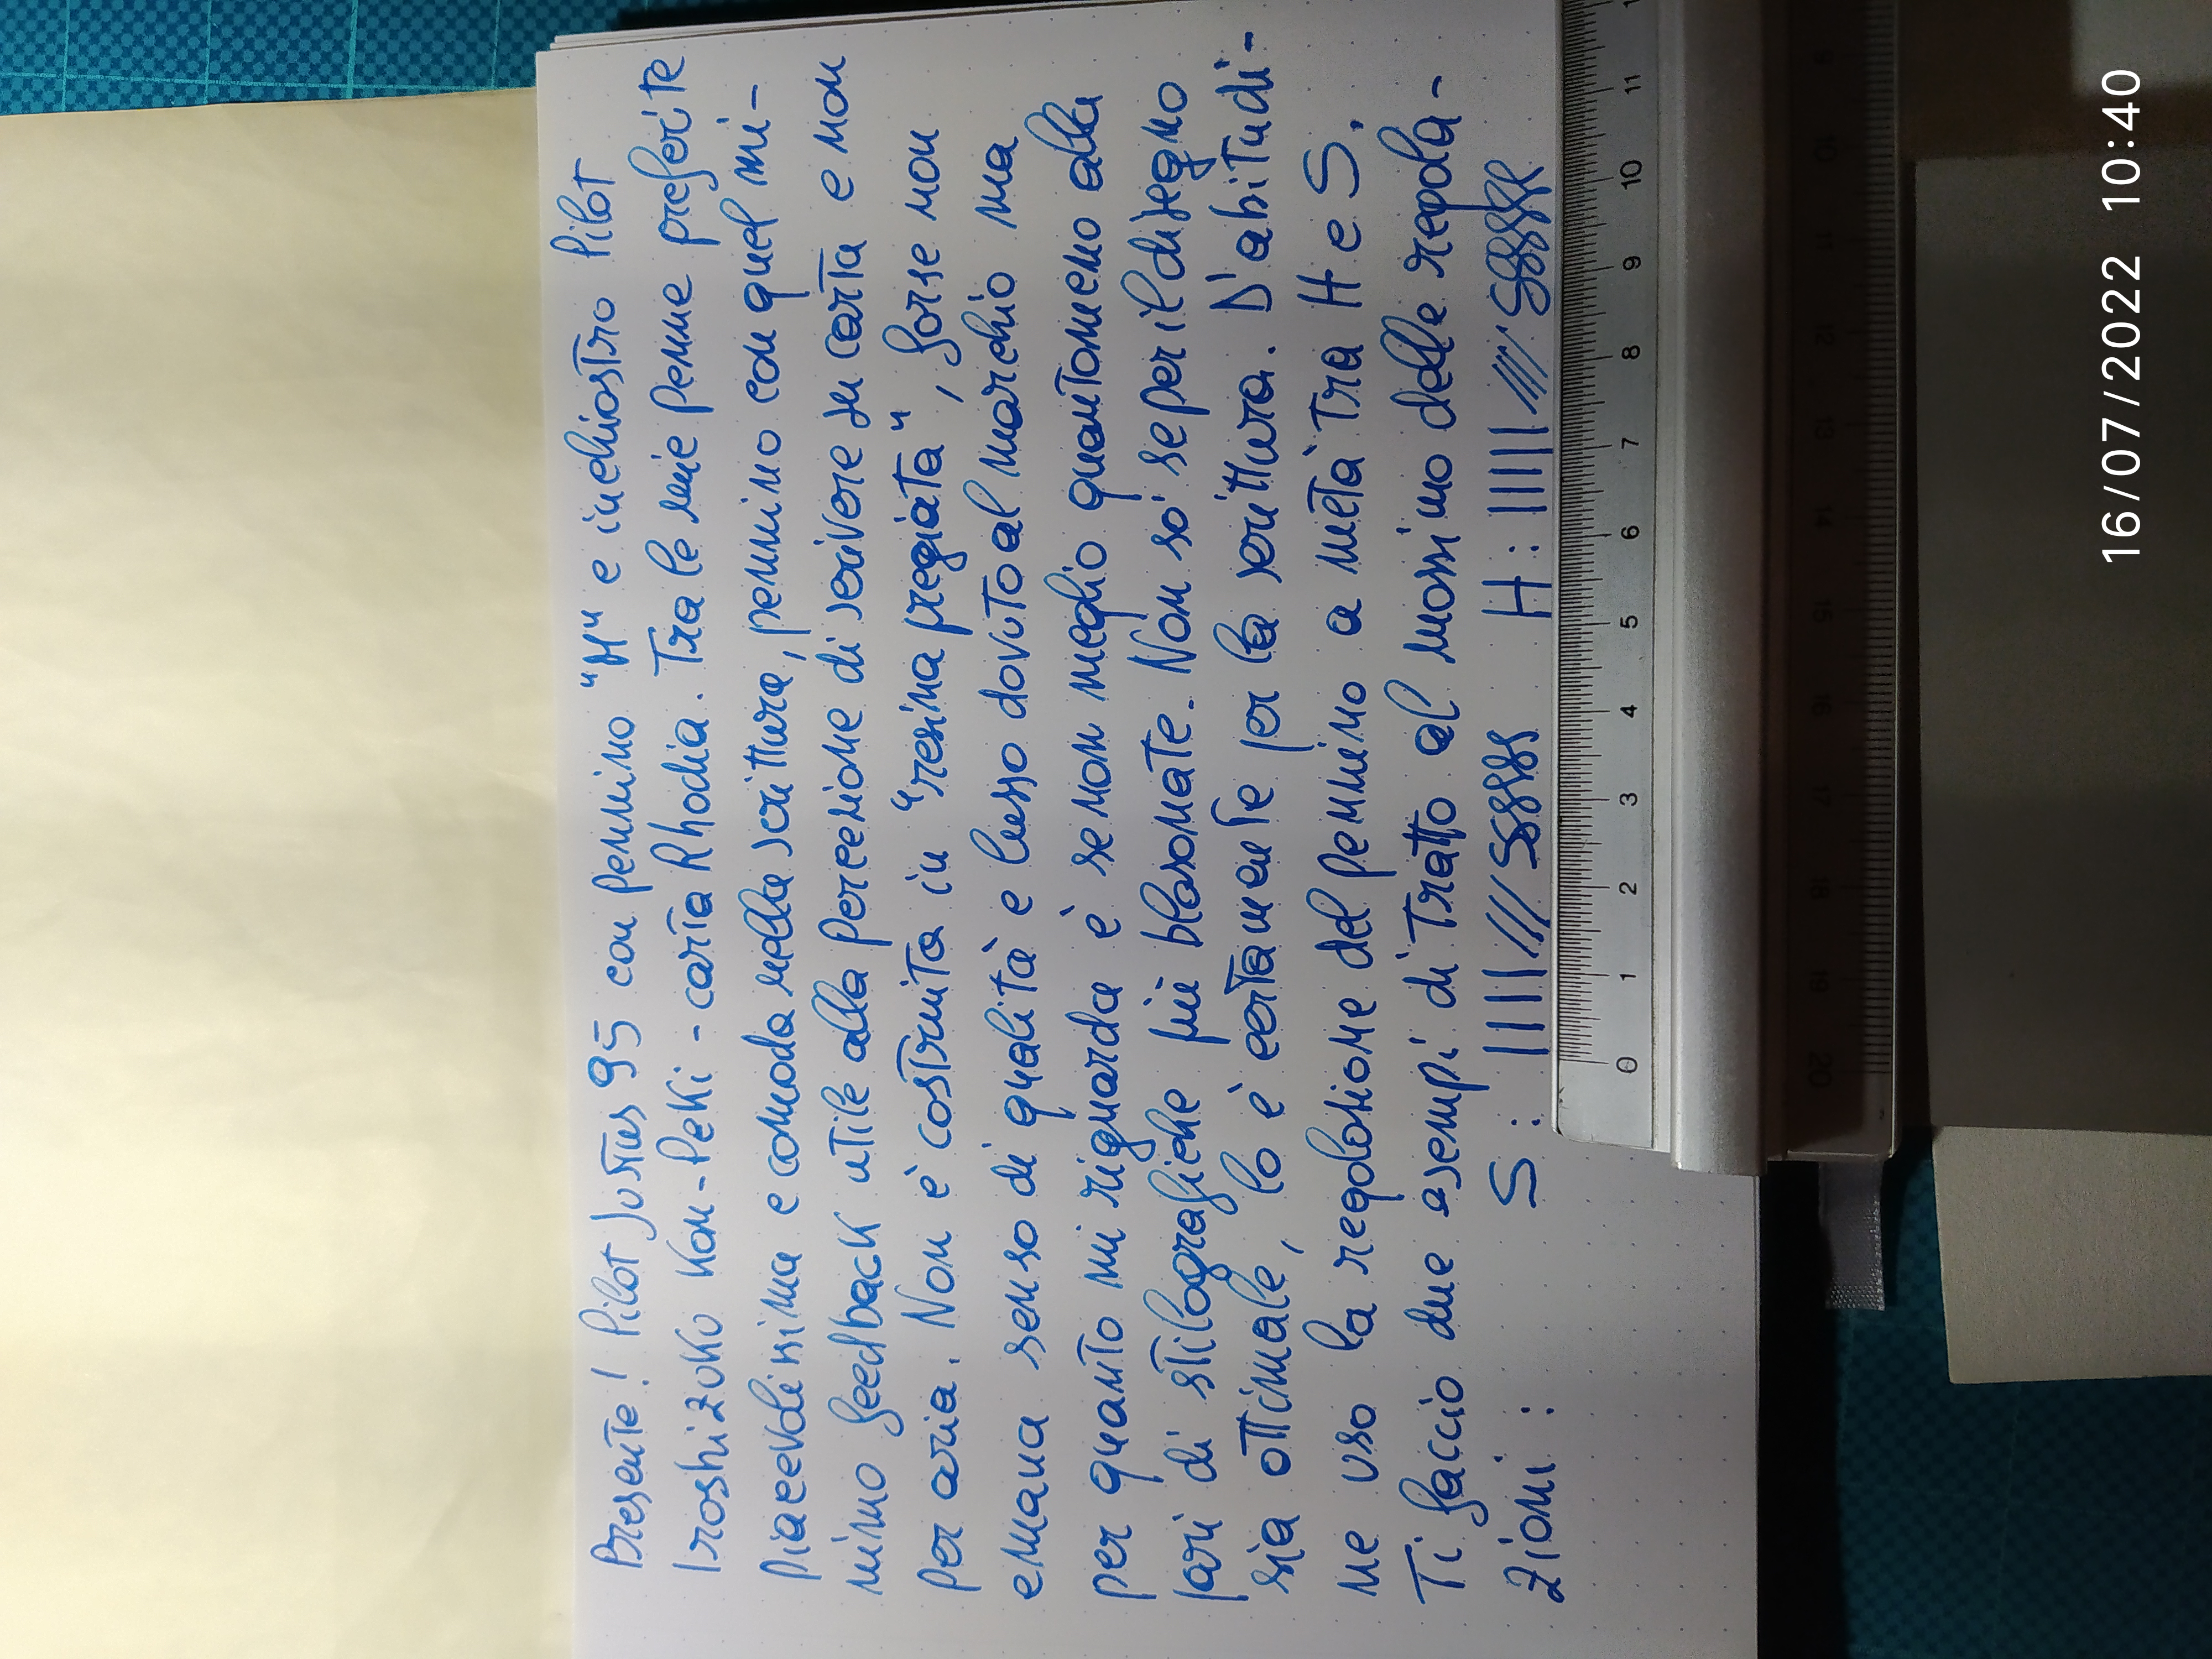 Presente! Pilot Justus 95 con pennino "M" e inchiostro Pilot
Iroshizuku Kon-Peki - carta Rhodia. Tra le mie penne preferite
piacevolissima e comoda nella scrittura, pennino con quel mi-
nimo feedback utile alla percezione di scrivere su carta e non
per aria. Non è costruita in "resina pregiata", forse non
emana senso di qualità e lusso dovuto al marchio ma
per quanto mi riguarda è se non meglio quantomeno alla
pari di stilografiche più blasonate. Non sò se per il disegno
sia ottimale, lo è certamente per la scrittura. D'abitudi-
ne uso la regolazione del pennino a metà tra H e S.
Ti faccio due esempi di tratto al massimo delle regola-
zioni: S: H:
0 1 2 3 4 5 6 7 8 9 10 11
20 19 18 17 16 15 14 13 12 11 10 9
16/07/2022 10:40